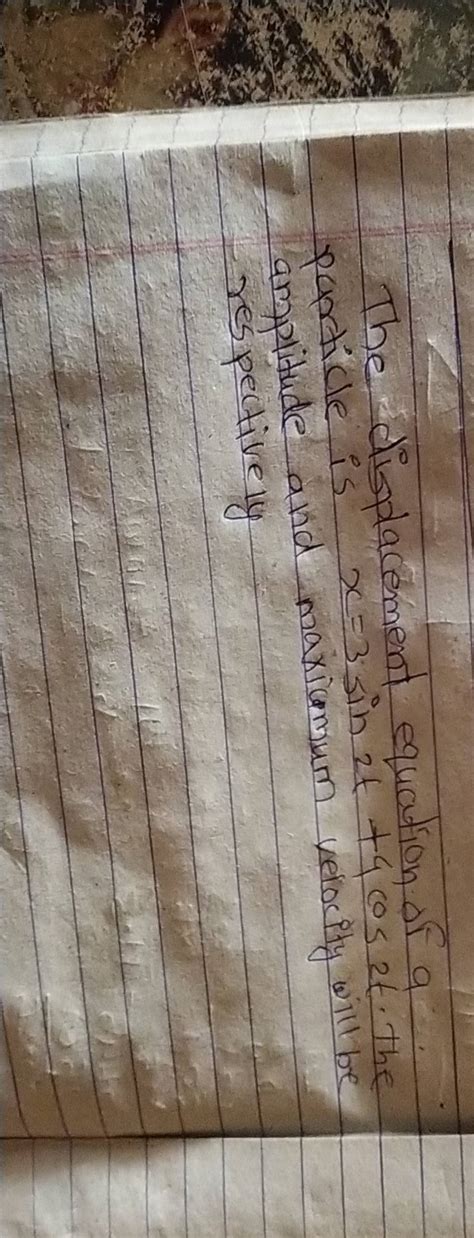 The displacement equation of a
particle is x=3 sin 2t + 4 cos 2t. The
amplitude and maxiumum velocity will be
respectively